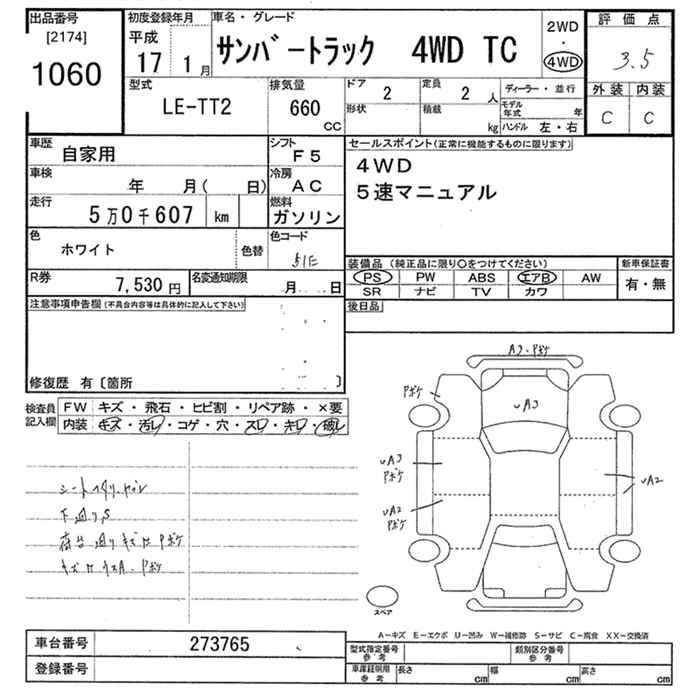 出品番号 初度登録年月 車名・グレード 評価点
[2174] 平成 2WD
1060 17 1月 サンバートラック 4WD TC ・ 3.5
4WD
型式 排気量 ドア 2 定員 2人 ディーラー・並行 外装 内装
LE-TT2 660 形状 積載 モデル年式 年 C C
CC kg ハンドル 左・右
車歴 自家用 シフト F5 セールスポイント(正常に機能するものに限ります)
車検 年 月( 日) 冷房 AC 4WD
走行 5万0千607 km 燃料 ガソリン 5速マニュアル
色 ホワイト 色替 色コード 51E
装備品(純正品に限り○をつけてください) 新車保証書
R券 7,530円 名変通知期限 月 日 PS PW ABS エアB AW 有・無
SR ナビ TV カワ
注意事項申告欄(不具合内容等は具体的に記入して下さい) 後日品
修復歴 有〔箇所 〕
検査員 FW キズ・飛石・ヒビ割・リペア跡・×要
記入欄 内装 キズ・汚レ・コゲ・穴・スレ・キレ・破レ
A3・Pボケ
Pボケ
UA3
UA3
Pボケ
UA2
UA2
Pボケ
下廻りS
スペア
A−キズ E−エクボ U−凹み W−補修跡 S−サビ C−腐食 XX−交換済
車台番号 273765 型式指定番号 参考 類別区分番号 参考
登録番号 車庫証明用 参考 長さ cm 幅 cm 高さ cm